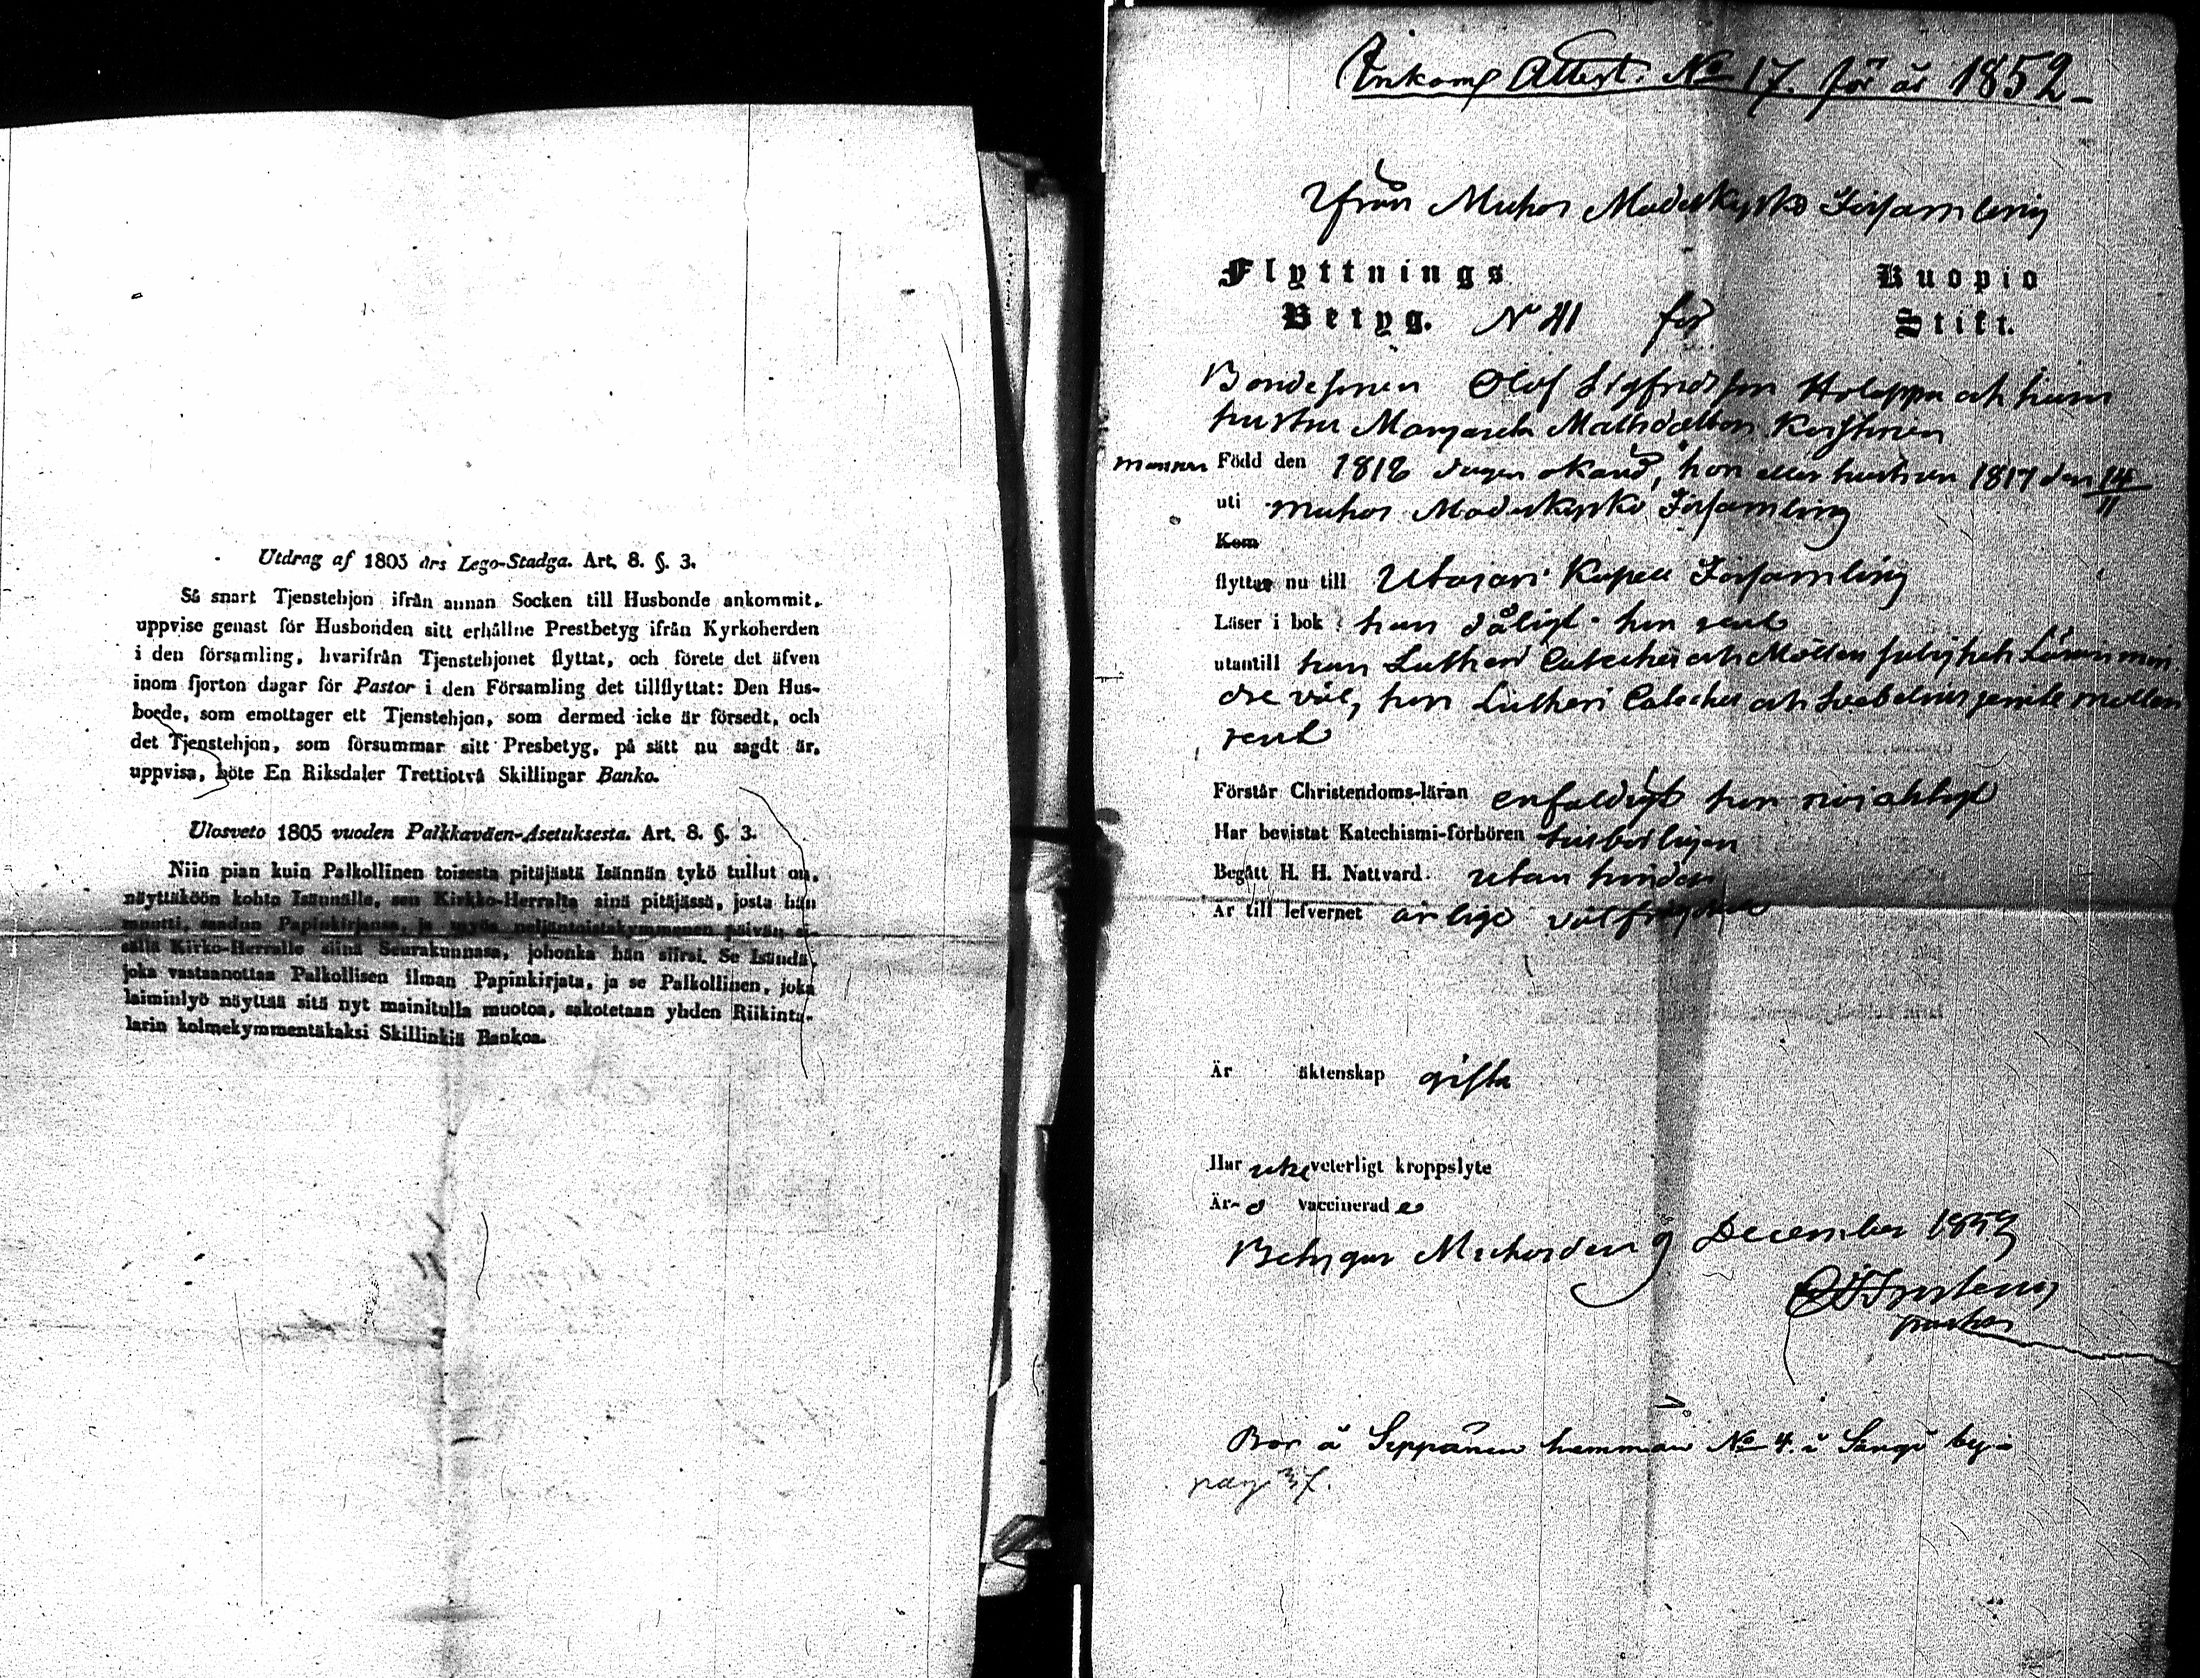 Utdrag af 1805 års Lego-Stadga. Art. 8. §. 3.
Så snart Tjenstehjon ifrån annan Socken till Husbonde ankommit,
uppvise genast för Husbonden sitt erhållne Prestbetyg ifrån Kyrkoherden
i den församling, hvarifrån Tjenstehjonet flyttat, och förete det äfven
inom fjorton dagar för Pastor i den Församling det tillflyttat: Den Hus-
boede, som emottager ett Tjenstehjon, som dermed icke är försedt, och
det Tjenstehjon, som försummar sitt Presbetyg, på sätt nu sagdt är,
uppvisa, böte En Riksdaler Trettiotvå Skillingar Banko.
Ulosveto 1805 vuoden Palkkaväen-Asetuksesta. Art. 8. §. 3.
Niin pian kuin Palkollinen toisesta pitäjästä Isännän tykö tullut on,
näyttäköön kohta Isännälle, sen Kirkko-Herralta siinä pitäjässä, josta hän
muutti, saadun Papinkirjansa, ja myös neljäntoistakymmenen päivän si-
sällä Kirko-Herralle siinä Seurakunnasa, johonka hän siirsi. Se Isändä,
joka vastaanottaa Palkollisen ilman Papinkirjata, ja se Palkollinen, joka
laiminlyö näyttää sitä nyt mainitulla muotoa, sakotetaan yhden Riikintu-
larin kolmekymmentäkaksi Skillinkiä Bankoa.
Inkomg Attest. No 17. för år 1852
Ifrån Muhos Moderkyrko Församling
Flyttnings Kuopio
Betyg. N 41 för Stift.
Bondesonen Olof Sigfridsson Holappa och hans
hustru Margareta Mattsdotter Karjalainen
mannen Född den 1818 dagen okänd, hon eller hustrun 1817 den 14/11
uti Muhos Moderkyrko Församling
Kom
flyttar nu till Utajärvi Kapell Församling
Läser i bok han dåligt hon rent
utantill han Lutheri Cateches och Möllers Salighets Läran min
dre väl, hon Lutheri Cateches och Svebelius jemte Möllers
rent
Förstår Christendoms-läran enfaldigt hon nöjaktigt
Har bevistat Katechismi-förhören
Begått H. H. Nattvard. utan hinder
Är till lefvernet ärlige välfrejdade
Är äktenskap gifta
Har icke veterligt kroppslyte
Är-o vaccinerade
Betygar Muhos den 9 December 1852
pastor
Bor å Seppänen hemman No 4. i Sanginby
pag 37.